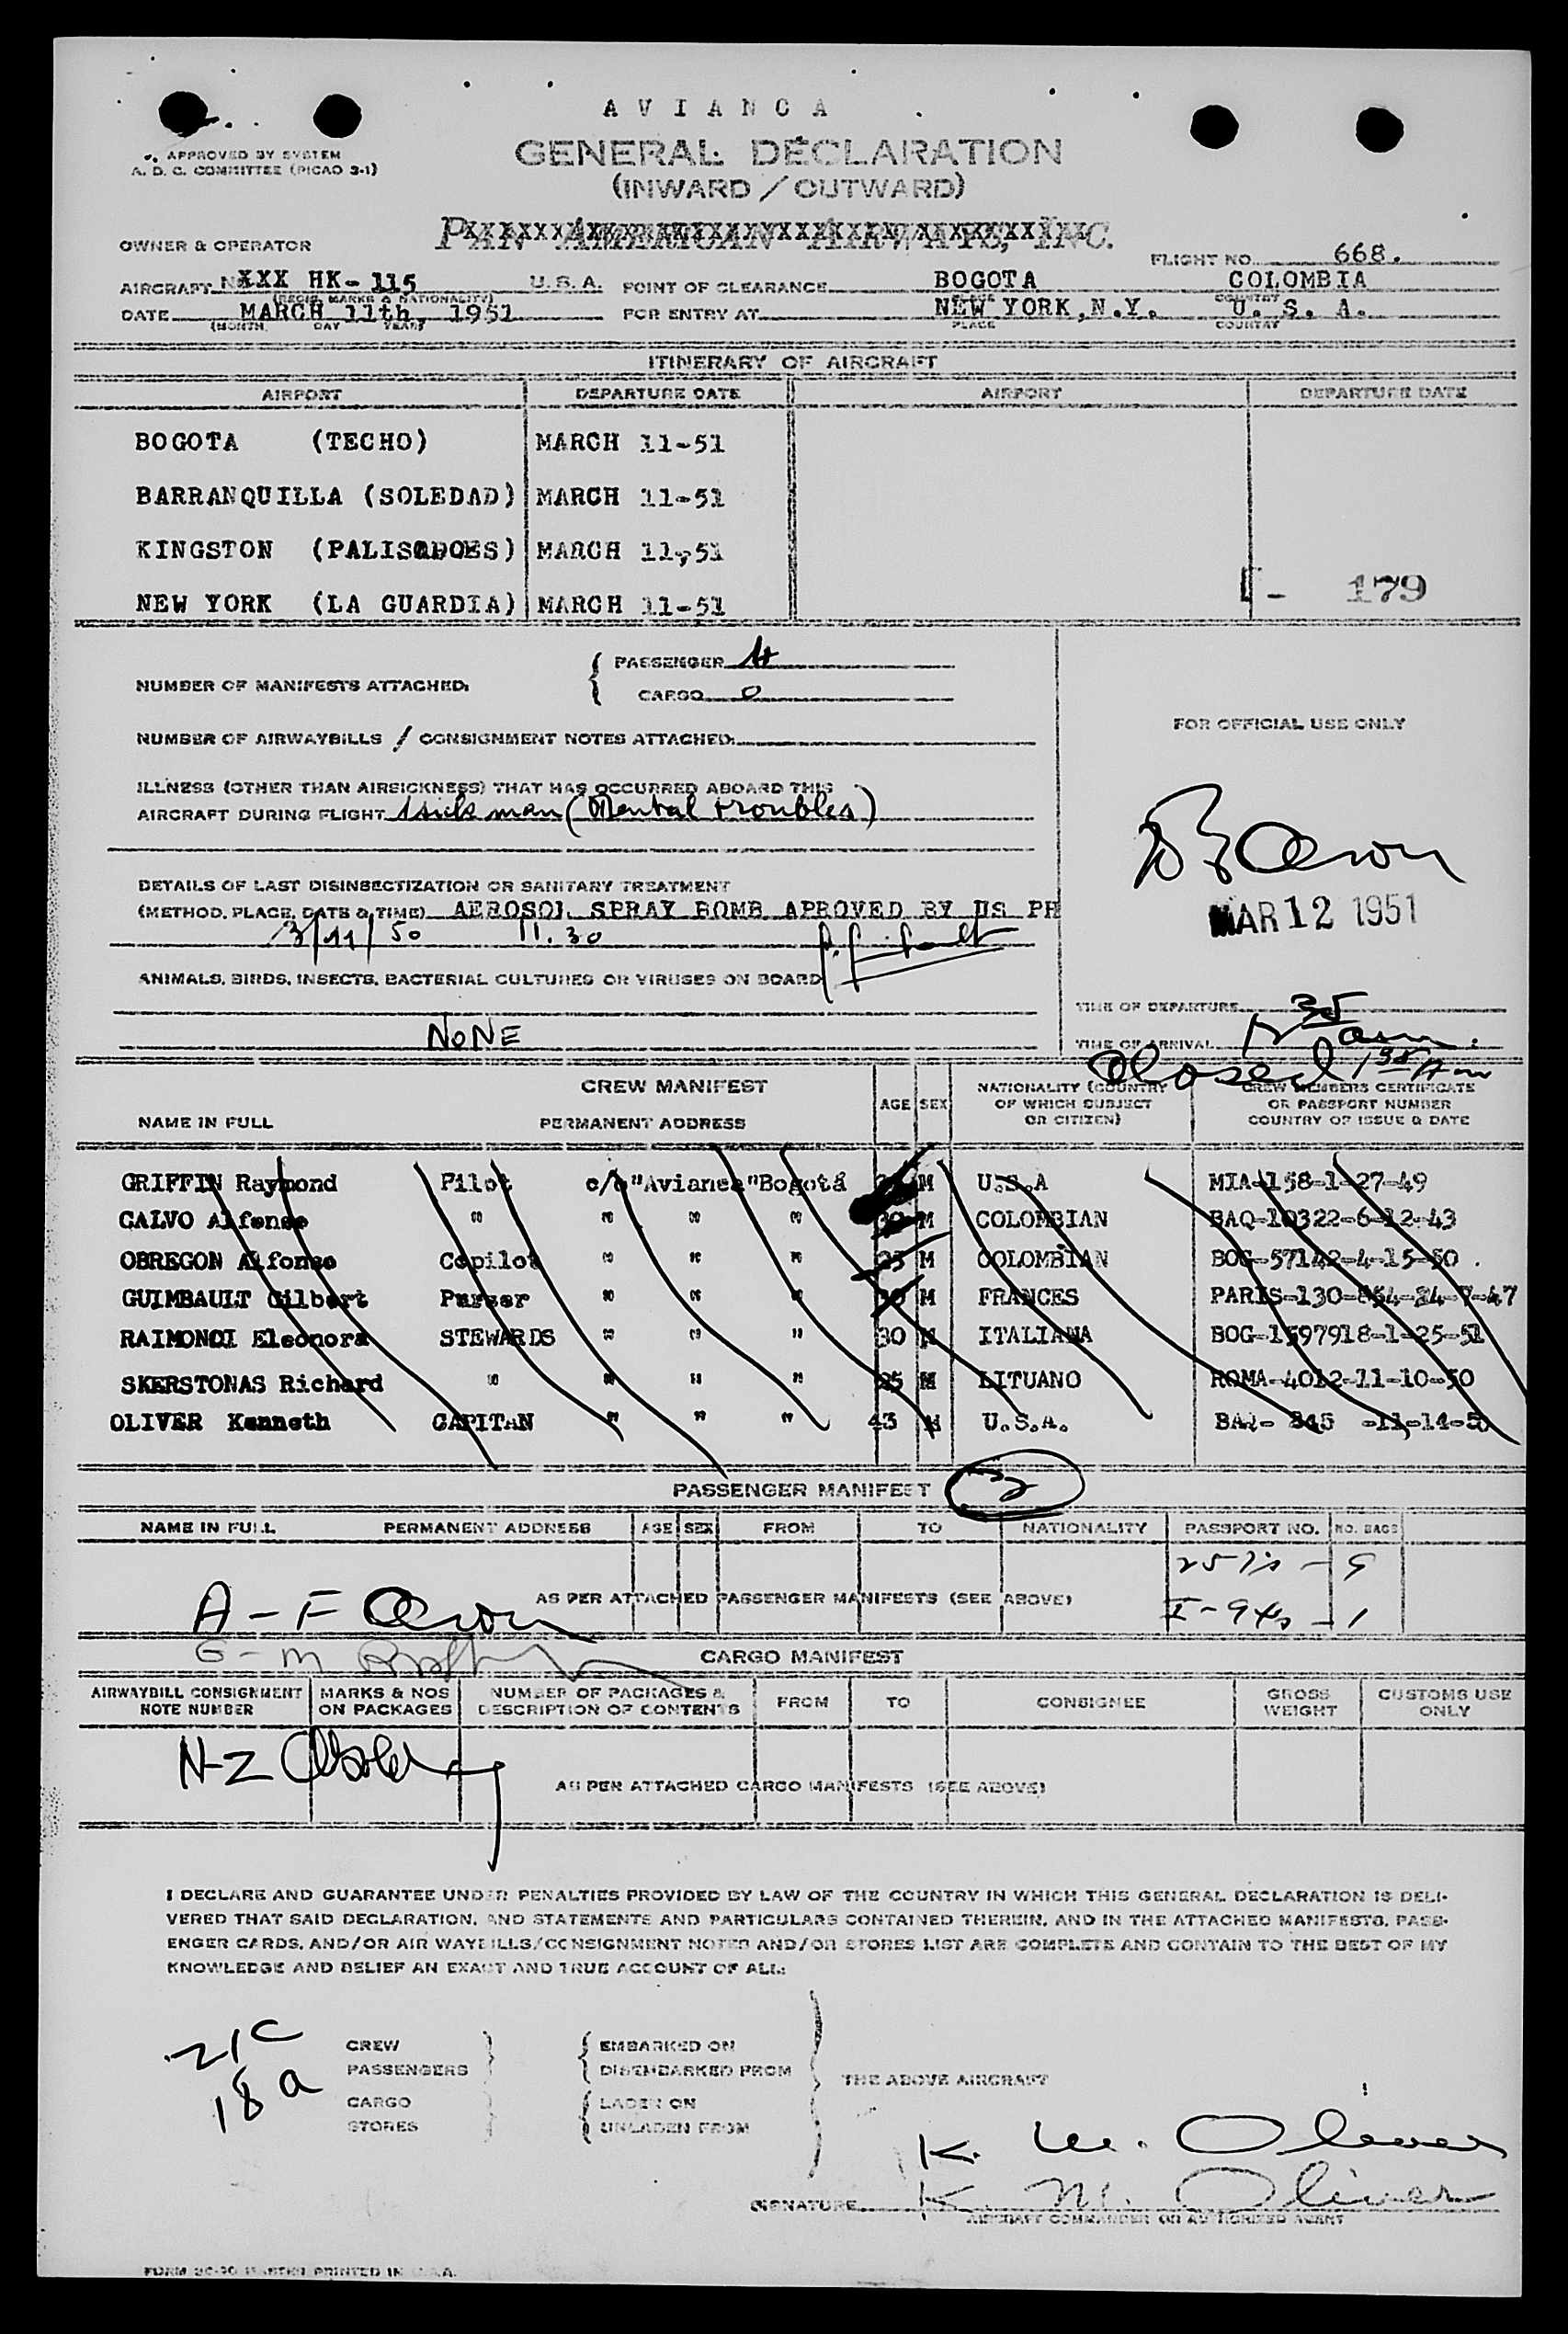 A V I A N C A
APPROVED BY SYSTEM
A. D. C. COMMITTEE (PICAO 3-1)
GENERAL DECLARATION
(INWARD / OUTWARD)
OWNER & OPERATOR PAN AMERICAN AIRWAYS, INC.
FLIGHT NO. 668.
AIRCRAFT NXXX HK-115 U.S.A. POINT OF CLEARANCE BOGOTA COLOMBIA
(REGIS. MARKS & NATIONALITY) PLACE COUNTRY
DATE MARCH 11th, 1951 FOR ENTRY AT NEW YORK,N.Y. U. S. A.
(MONTH, DAY YEAR) PLACE COUNTRY
ITINERARY OF AIRCRAFT
AIRPORT DEPARTURE DATE AIRPORT DEPARTURE DATE
BOGOTA (TECHO) MARCH 11-51
BARRANQUILLA (SOLEDAD) MARCH 11-51
KINGSTON (PALISADOES) MARCH 11-51
NEW YORK (LA GUARDIA) MARCH 11-51
- 179
NUMBER OF MANIFESTS ATTACHED: PASSENGER 4
CARGO 0
FOR OFFICIAL USE ONLY
NUMBER OF AIRWAYBILLS / CONSIGNMENT NOTES ATTACHED:
ILLNESS (OTHER THAN AIRSICKNESS) THAT HAS OCCURRED ABOARD THIS
AIRCRAFT DURING FLIGHT 1 sick man (Mental troubles)
DETAILS OF LAST DISINSECTIZATION OR SANITARY TREATMENT
(METHOD, PLACE, DATE & TIME) AEROSOL SPRAY BOMB APROVED BY US PH
MAR 12 1951
3/11/50 11.30
ANIMALS, BIRDS, INSECTS, BACTERIAL CULTURES OR VIRUSES ON BOARD
NONE
TIME OF DEPARTURE
TIME OF ARRIVAL 12 35 am.
Closed 1 38 Am
CREW MANIFEST
NAME IN FULL PERMANENT ADDRESS AGE SEX NATIONALITY (COUNTRY OF WHICH SUBJECT OR CITIZEN) CREW MEMBERS CERTIFICATE OR PASSPORT NUMBER COUNTRY OF ISSUE & DATE
GRIFFIN Raymond Pilot c/o "Avianca" Bogotá M U.S.A MIA-158-1-27-49
CALVO Alfonso " " " " M COLOMBIAN BAQ-10322-6-12-43
OBREGON Alfonso Copilot " " " M COLOMBIAN BOG-57142-4-15-50 .
GUIMBAULT Gilbert Purser " " " M FRANCES PARIS-130-864-24-7-47
RAIMONDI Eleonora STEWARDS " " " 30 ITALIANA BOG-1597918-1-25-51
SKERSTONAS Richard " " " " 25 M LITUANO ROMA-4012-11-10-50
OLIVER Kenneth CAPITAN " " " 43 M U.S.A. BAQ- 845 -11-14-50
PASSENGER MANIFEST
NAME IN FULL PERMANENT ADDRESS AGE SEX FROM TO NATIONALITY PASSPORT NO. NO. BAGS
AS PER ATTACHED PASSENGER MANIFESTS (SEE ABOVE)
A - F
G - M
CARGO MANIFEST
AIRWAYBILL CONSIGNMENT NOTE NUMBER MARKS & NOS ON PACKAGES NUMBER OF PACKAGES & DESCRIPTION OF CONTENTS FROM TO CONSIGNEE GROSS WEIGHT CUSTOMS USE ONLY
N-Z
AS PER ATTACHED CARGO MANIFESTS (SEE ABOVE)
I DECLARE AND GUARANTEE UNDER PENALTIES PROVIDED BY LAW OF THE COUNTRY IN WHICH THIS GENERAL DECLARATION IS DELI-
VERED THAT SAID DECLARATION, AND STATEMENTS AND PARTICULARS CONTAINED THEREIN, AND IN THE ATTACHED MANIFESTS, PASS-
ENGER CARDS, AND/OR AIR WAYBILLS/CONSIGNMENT NOTES AND/OR STORES LIST ARE COMPLETE AND CONTAIN TO THE BEST OF MY
KNOWLEDGE AND BELIEF AN EXACT AND TRUE ACCOUNT OF ALL:
21 C
18 a
CREW EMBARKED ON
PASSENGERS DISEMBARKED FROM
THE ABOVE AIRCRAFT
CARGO LADEN ON
STORES UNLADEN FROM
K. M. Oliver
SIGNATURE K. M. Oliver
AIRCRAFT COMMANDER OR AUTHORIZED AGENT